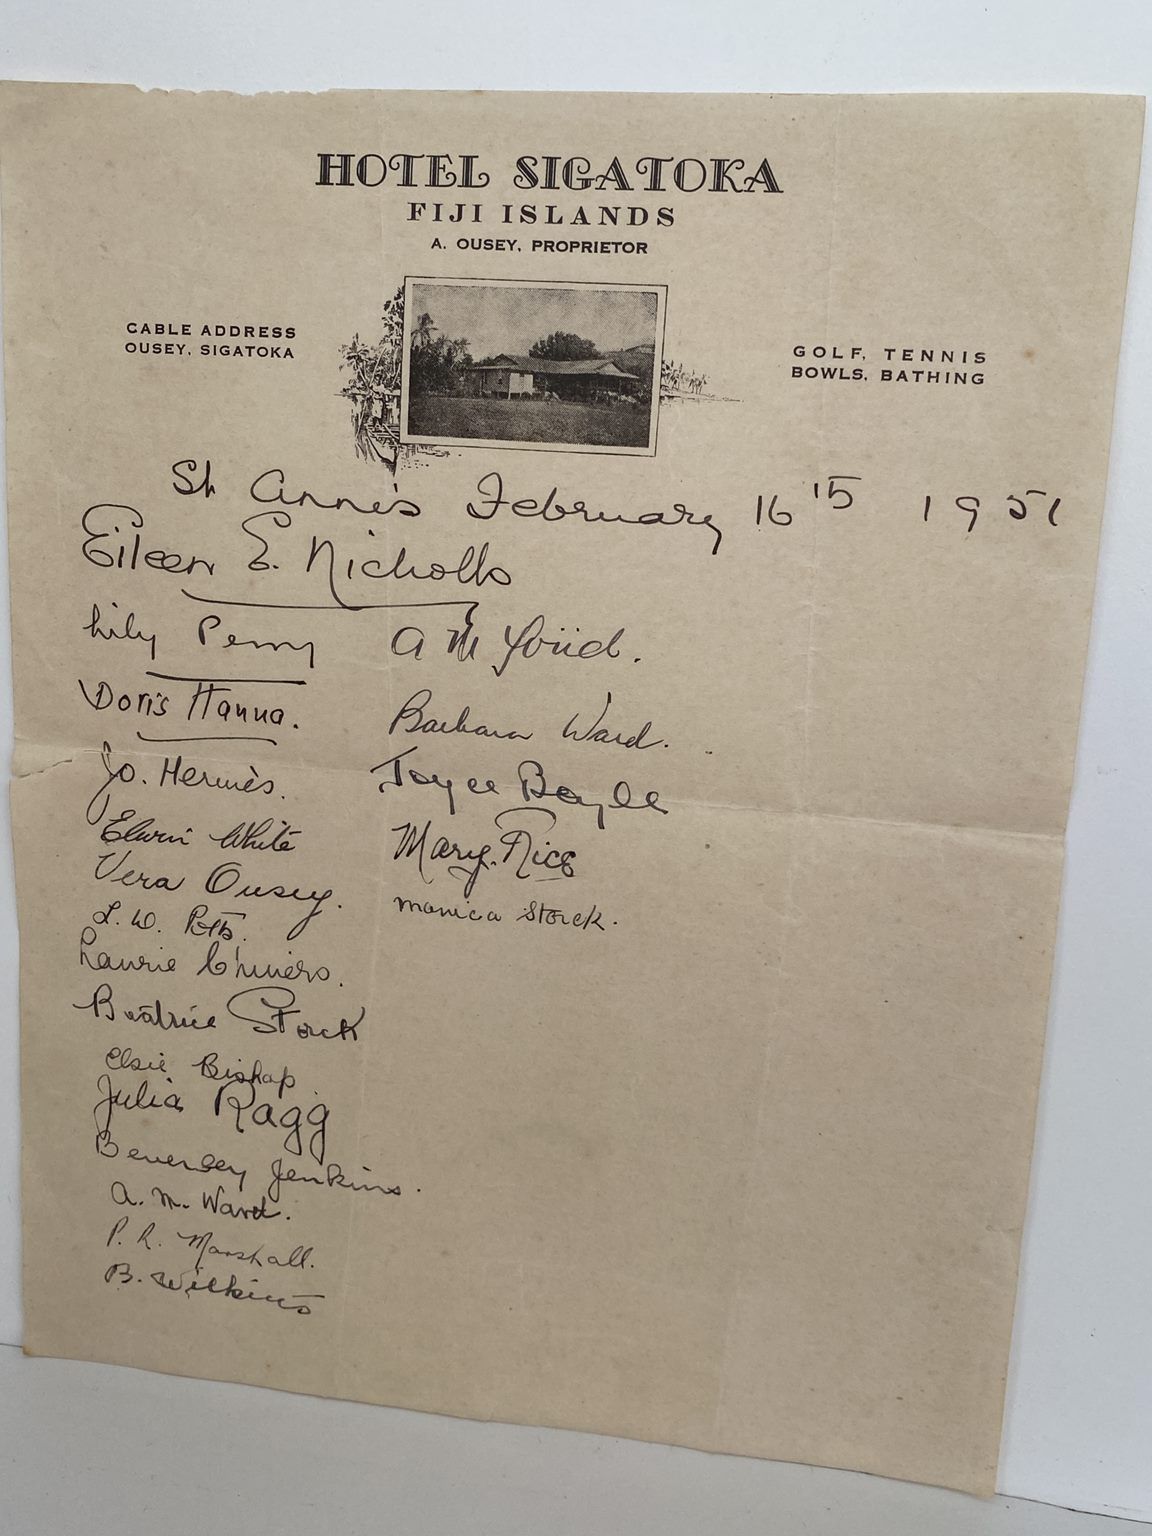 HOTEL SIGATOKA
FIJI ISLANDS
A. OUSEY, PROPRIETOR
CABLE ADDRESS
OUSEY, SIGATOKA
GOLF, TENNIS
BOWLS, BATHING
St Anne's February 16 1951
Eileen E. Nicholls
Lily Perry
Doris Hanna.
Jo. Hermès.
Elwin White
Vera Ousey.
L. W. Potts.
Laurie
Beatrice Stork
Elsie Bishop
Julia Ragg
Beverley Jenkins.
A. M. Ward.
P. R. Marshall.
B. Wilkins
A M
Barbara Ward.
Joyce Bayll
Mary. Rice
Monica Stork.